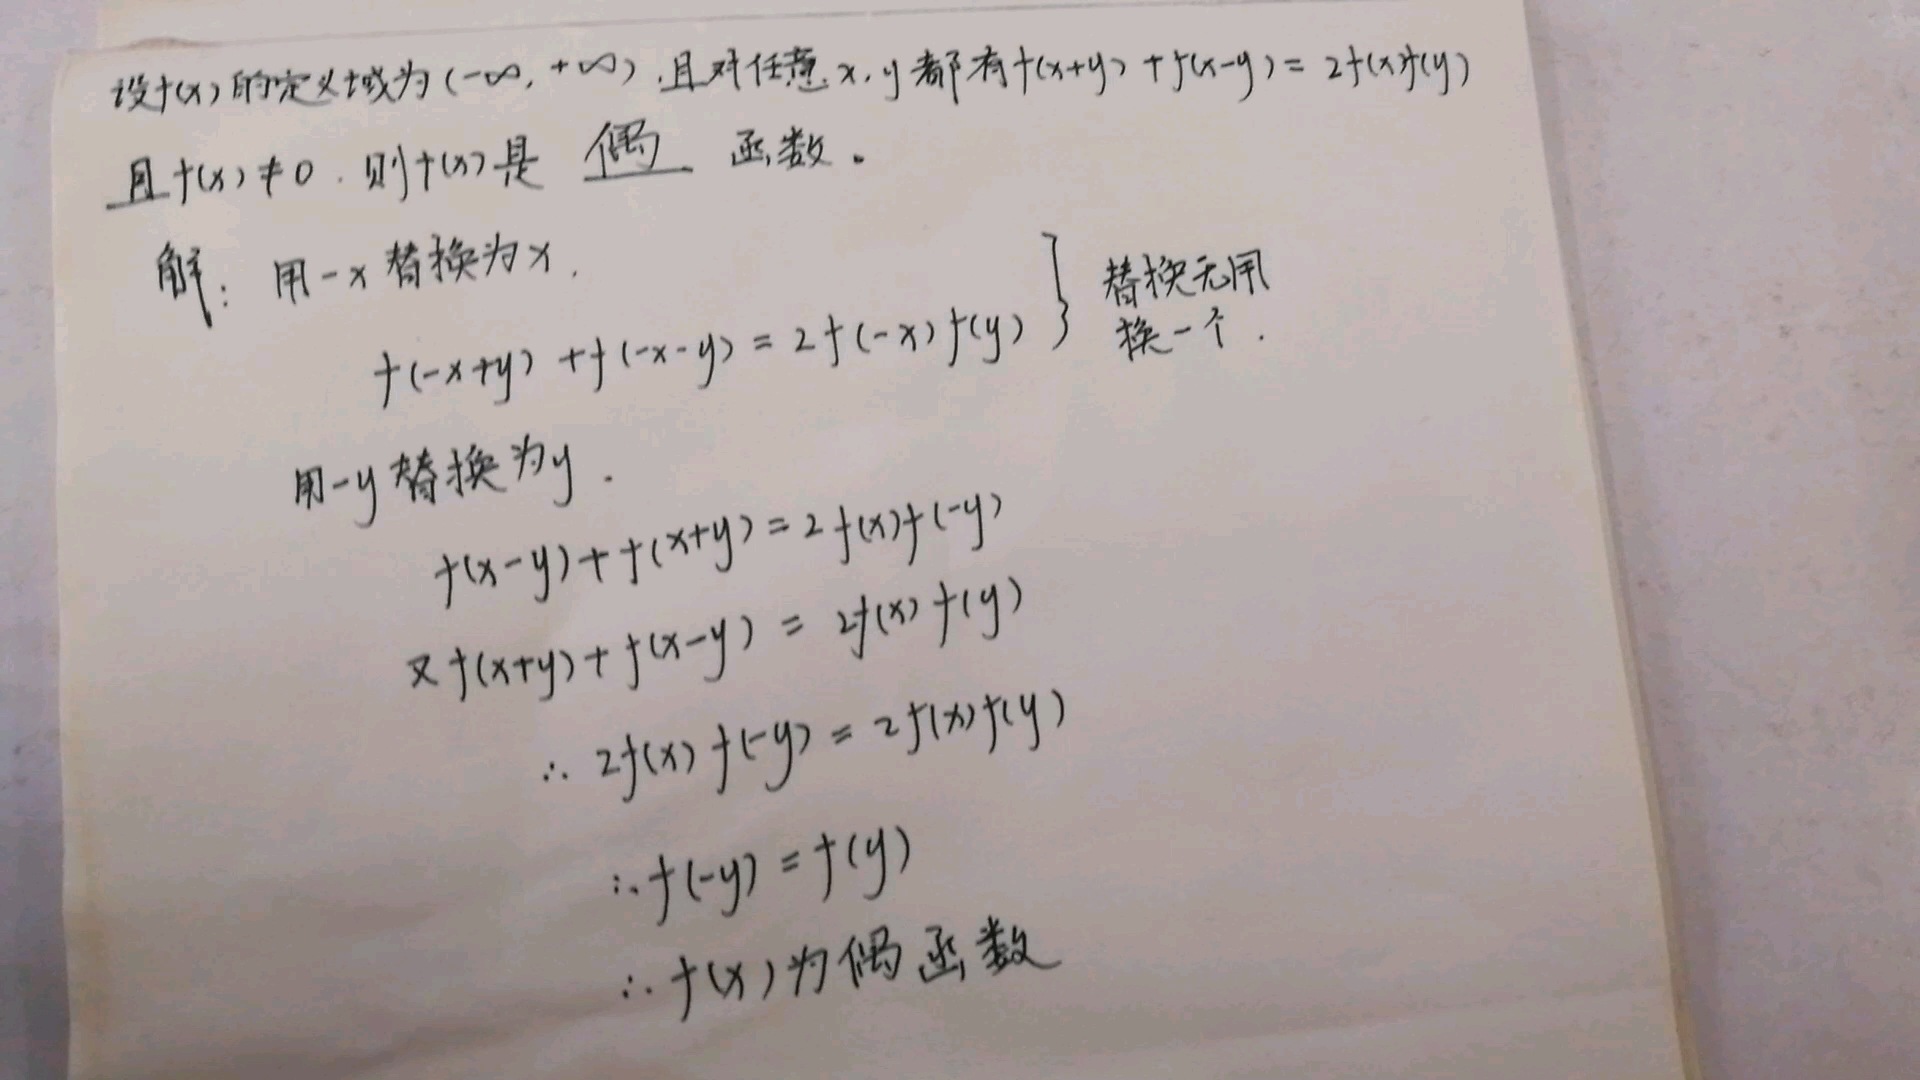 设f(x)的定义域为(-∞,+∞),且对任意x,y都有f(x+y)+f(x-y)=2f(x)f(y)
且f(x)≠0.则f(x)是 偶 函数。
解:用-x替换为x.
f(-x+y)+f(-x-y)=2f(-x)f(y)}
替换无用
换一个.
用-y替换为y.
f(x-y)+f(x+y)=2f(x)f(-y)
又f(x+y)+f(x-y)=2f(x)f(y)
∴2f(x)f(-y)=2f(x)f(y)
∴f(-y)=f(y)
∴f(x)为偶函数